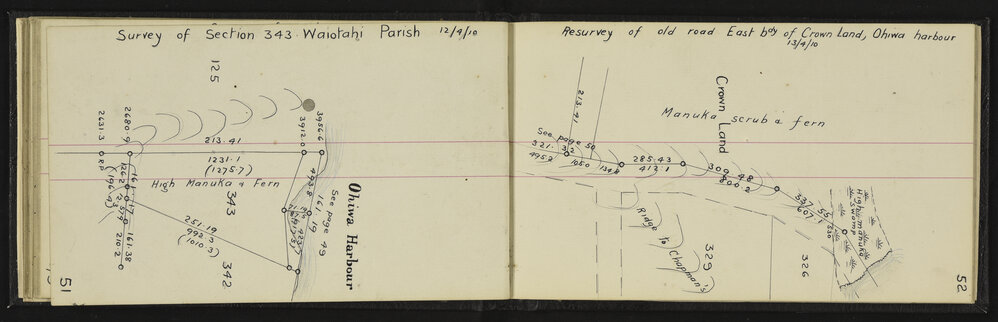 Survey of Section 343 Waiotahi Parish 12/4/10
125
3956.6
3912.0
2680.9
2631.3
R.P.
213.41
1231.1
(1275.7)
High Manuka & Fern
343
342
251.19
992.3
(1010.3)
161.38
210.2
161.19
See page 49
Ohiwa Harbour
51
Resurvey of old road East bdy of Crown Land, Ohiwa harbour
13/4/10
213.41
Crown Land
Manuka scrub & fern
See page 50
321.32
495.2
1050
285.43
412.1
309.48
800.2
337.55
607.1
High manuka
& swamp
Ridge to Chapman's
329
326
52